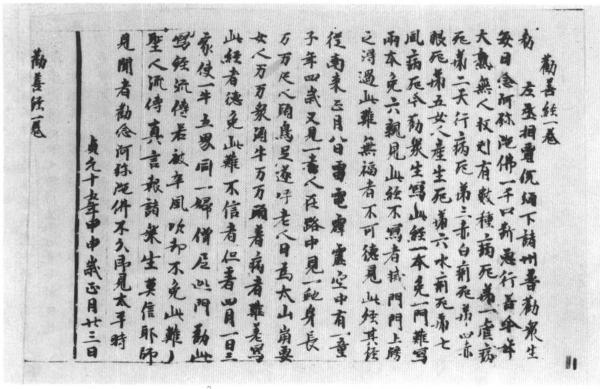 勸善經一卷
勅左丞相賈伣頒下諸州普勸衆生
每日念阿弥陁佛一千口斷惡行善今年
大熟無人收刈有數種病死苐一瘧病
死苐二天行病死苐三赤白痢死苐四赤
眼死苐五女人産生死苐六水痢死苐七
風病死今勸衆生寫此經一本免一門難寫
兩本免六親見此經不寫者滅門門上牓
之得過此難無福者不可德見此經其經
從南来正月八日雷電霹靂空中有一童
子年四歲又見一老人在路中見一虵身長
万万尺人頭鳥足遂呼老人曰為太山崩要
女人万万衆須牛万万頭著病者難差寫
此經者德免此難不信者但看四月一日三
家使一牛五男同一婦僧尼巡門勸此
寫經流傳若被卒風吹却不免此難
聖人流傳真言報諸衆生莫信邪師
見聞者勸念阿弥陁佛不久即見太平時
貞元十九年甲申歲正月廿三日
勸善經一卷